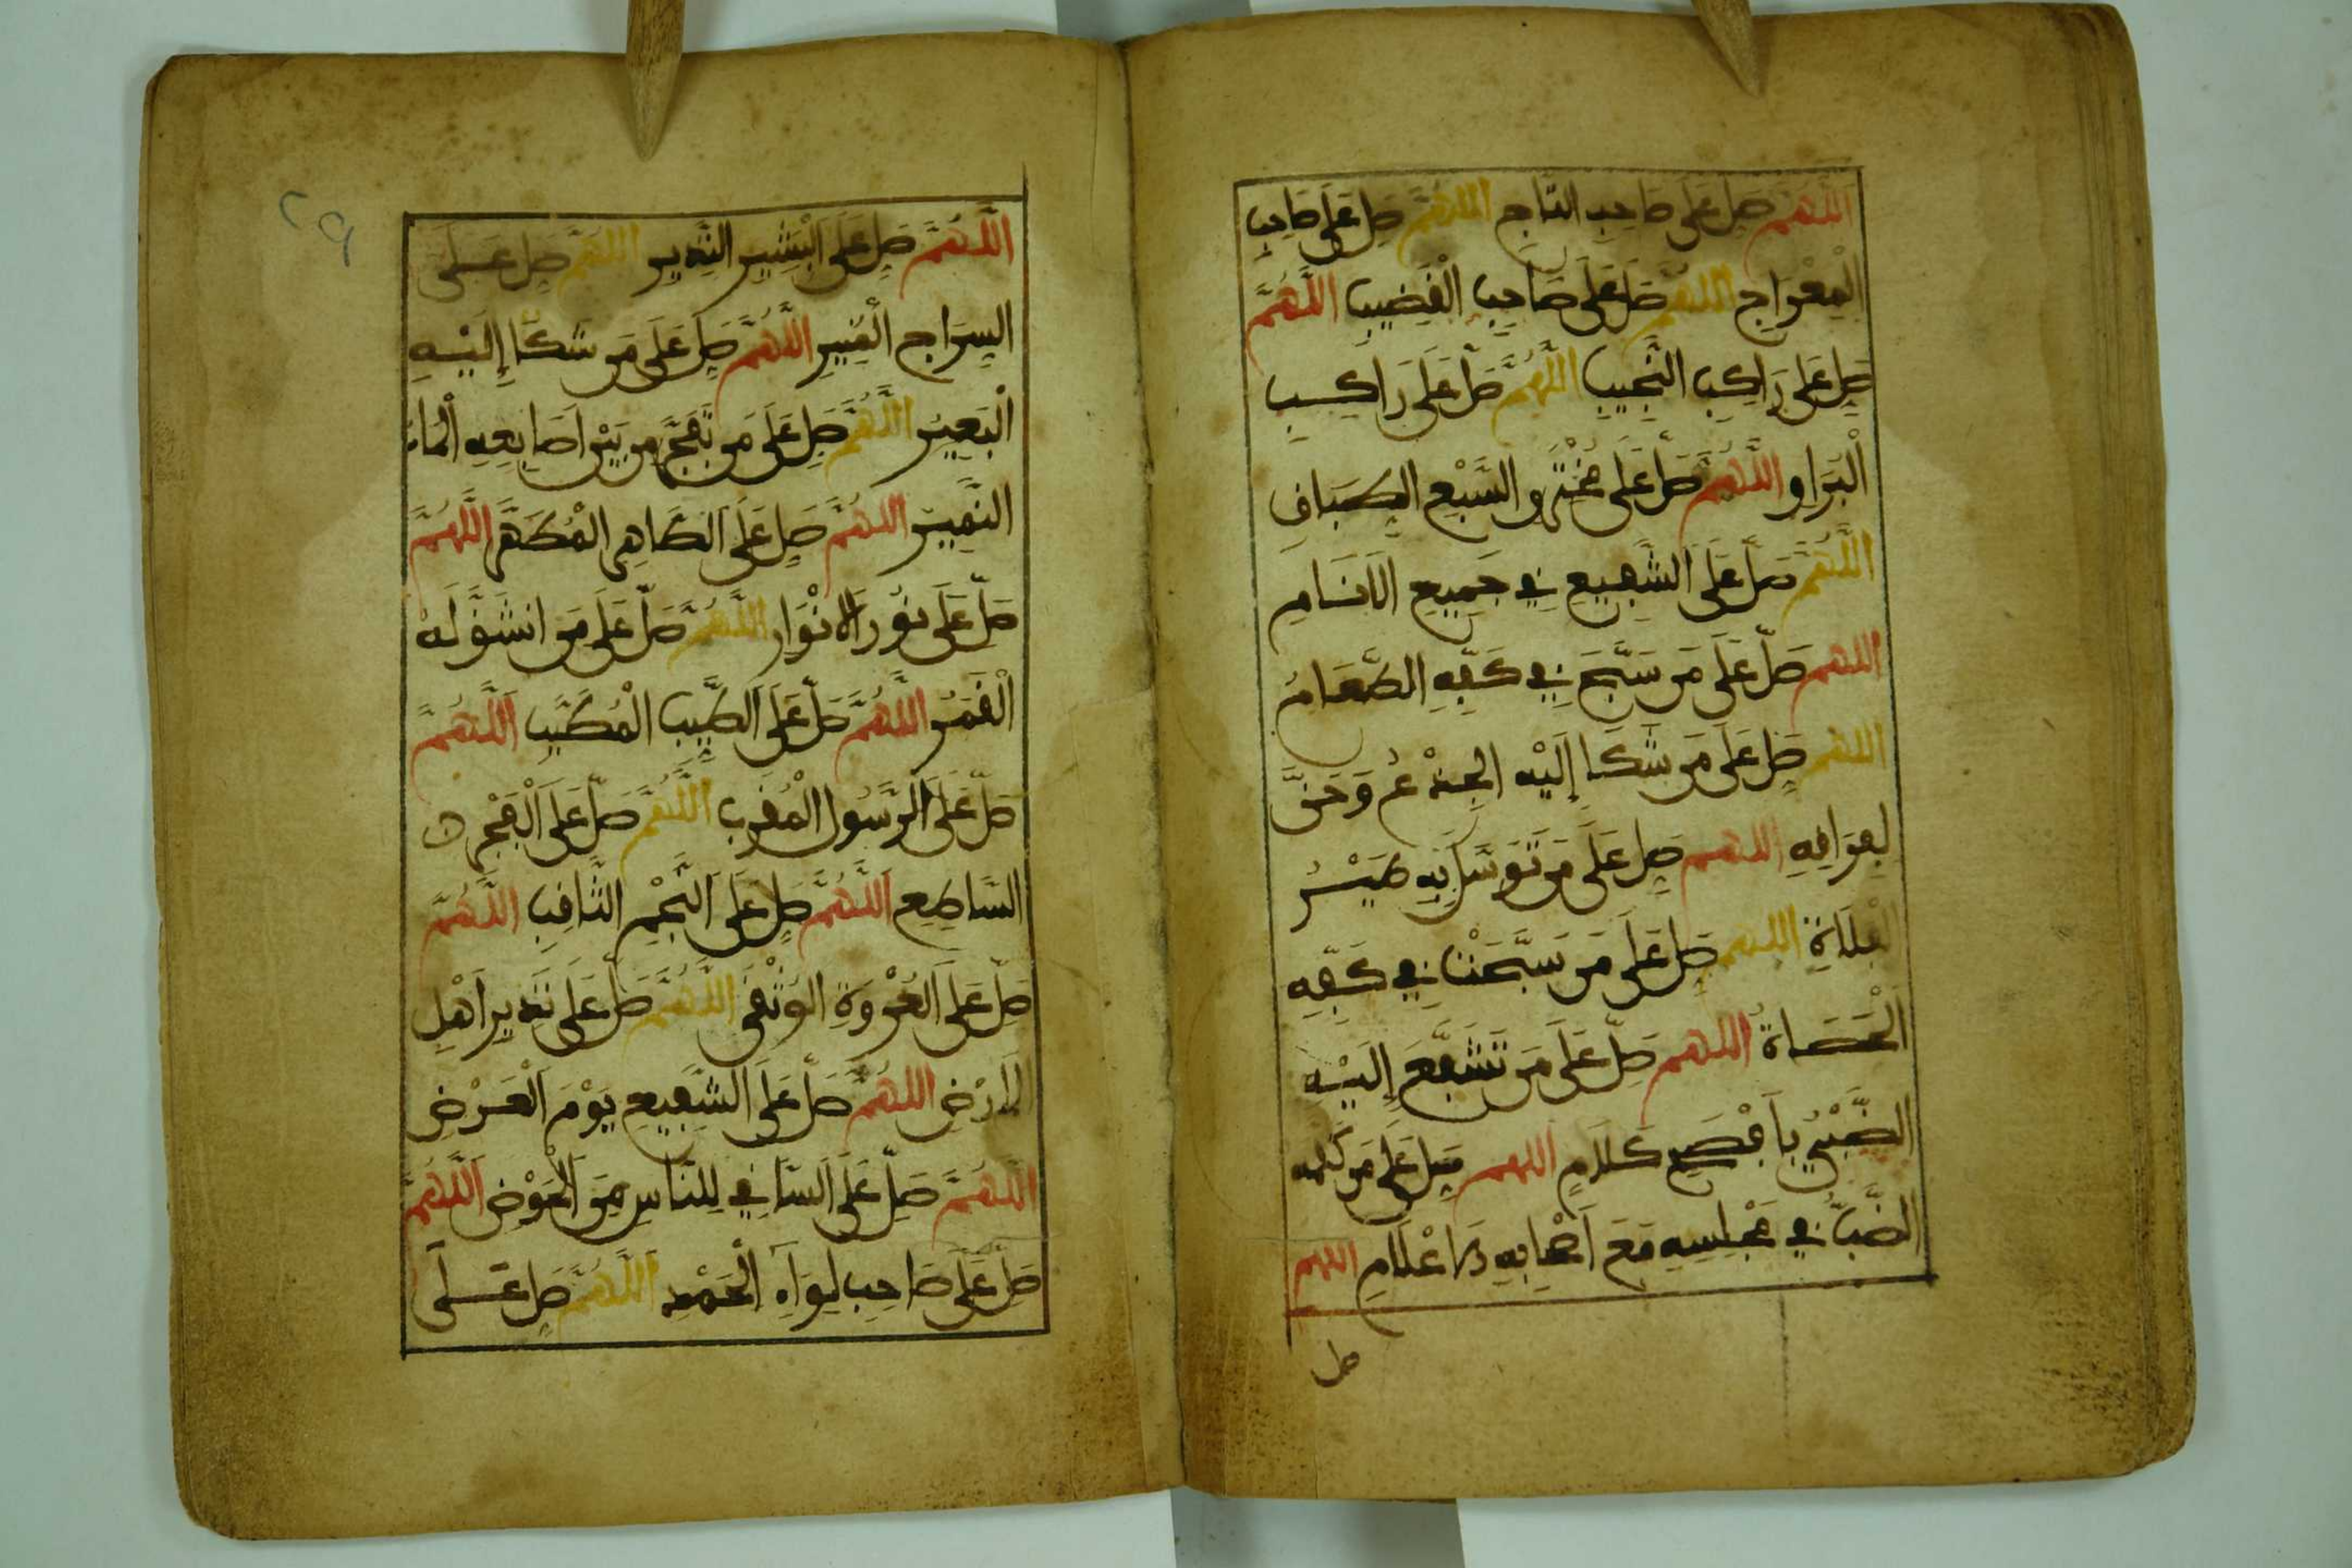 اللهم صل على صاحب التاج اللهم صل على صاحب
المعراج اللهم صل على صاحب القضيب اللهم
صل على راكب النجيب اللهم صل على راكب
البراق اللهم صل على مخترق السبع الطباق
اللهم صل على الشفيع في جميع الانام
اللهم صل على من سبح في كفه الطعام
اللهم صل على من شكا إليه الجذع وحن
لفراقه اللهم صل على من توسل به طير
الفلاة اللهم صل على من سبحت في كفه
الحصاة اللهم صل على من تشفع إليه
الضبي بأفصح كلام اللهم صل على من كلمه
الضب في مجلسه مع أصحابه الاعلام اللهم
صل
اللهم صل على البشير النذير اللهم صل على
السراج المنير اللهم صل على من شكا إليه
البعير اللهم صل على من تفجر من بين أصابعه الماء
النمير اللهم صل على الطاهر المطهر اللهم
صل على نور الانوار اللهم صل على من انشق له
القمر اللهم صل على الطيب المطيب اللهم
صل على الرسول المقرب اللهم صل على الفجر
الساطع اللهم صل على النجم الثاقب اللهم
صل على العروة الوثقى اللهم صل على نذير أهل
الارض اللهم صل على الشفيع يوم العرض
اللهم صل على الساقي للناس من الحوض اللهم
صل على صاحب لواء الحمد اللهم صل على